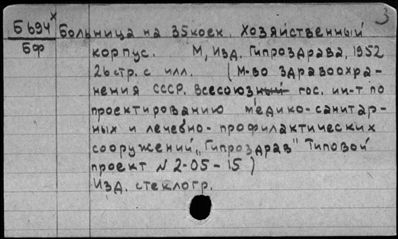 3
Б694х Больница на 35 коек. Хозяйственный
Бф корпус. М, Изд. Гипроздрава, 1952
26 стр. с илл. (М-во здравоохра-
нения СССР. Всесоюзный гос. ин-т по
проектированию медико-санитар-
ных и лечебно-профилактических
сооружений „Гипроздрав" Типовой
проект N 2-05-15)
Изд. стеклогр.